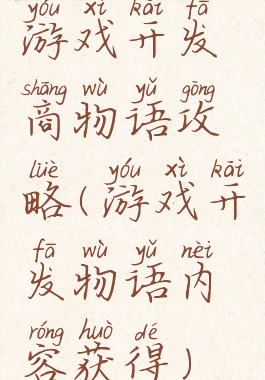 yóu xì kāi fā
游戏开发
shāng wù yǔ gōng
商物语攻
lüè yóu xì kāi
略(游戏开
fā wù yǔ nèi
发物语内
róng huò dé
容获得)